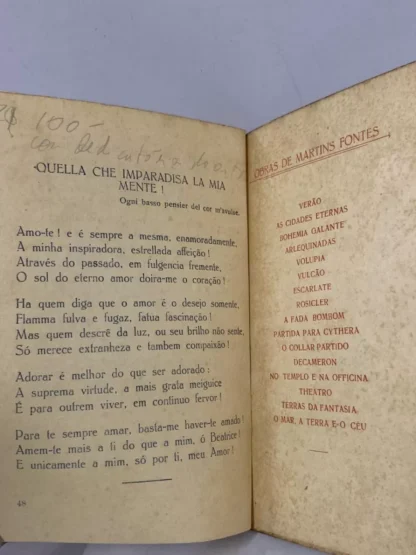 100-
com Dedicatória do autor
QUELLA CHE IMPARADISA LA MIA
MENTE !
Ogni basso pensier del cor m'avulse.
Amo-te ! e é sempre a mesma, enamoradamente,
A minha inspiradora, estrellada affeição !
Através do passado, em fulgencia fremente,
O sol do eterno amor doira-me o coração !
Ha quem diga que o amor é o desejo somente,
Flamma fulva e fugaz, fatua fascinação !
Mas quem descrê da luz, ou seu brilho não sente,
Só merece extranheza e tambem compaixão !
Adorar é melhor do que ser adorado :
A suprema virtude, a mais grata meiguice
É para outrem viver, em continuo fervor !
Para te sempre amar, basta-me haver-te amado !
Amem-te mais a ti do que a mim, ó Beatrice !
E unicamente a mim, só por ti, meu Amor !
48
OBRAS DE MARTINS FONTES
VERÃO
AS CIDADES ETERNAS
BOHEMIA GALANTE
ARLEQUINADAS
VOLUPIA
VULCÃO
ESCARLATE
ROSICLER
A FADA BOMBOM
PARTIDA PARA CYTHERA
O COLLAR PARTIDO
DECAMERON
NO TEMPLO E NA OFFICINA
THEATRO
TERRAS DA FANTASIA
O MAR, A TERRA E O CEU